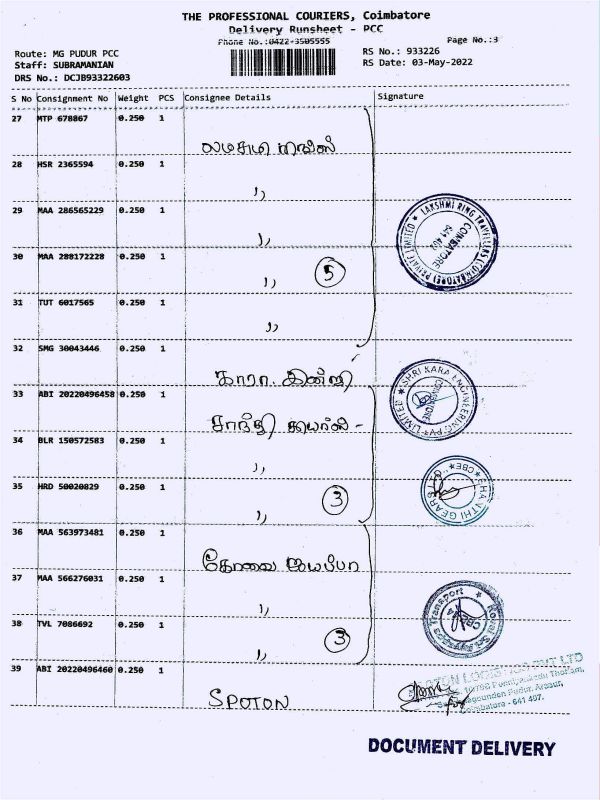 THE PROFESSIONAL COURIERS, Coimbatore
Delivery Runsheet - PCC
Phone No.:0422-3505555
Page No.:3
Route: MG PUDUR PCC
Staff: SUBRAMANIAN
DRS No.: DCJB93322603
RS No.: 933226
RS Date: 03-May-2022
S No Consignment No Weight PCS Consignee Details Signature
27 MTP 678867 0.250 1
28 HSR 2365594 0.250 1 ,,
29 MAA 286565229 0.250 1 ,,
30 MAA 288172228 0.250 1 ,, 5
31 TUT 6017565 0.250 1 ,,
LAKSHMI RING TRAVELLERS (COIMBATORE) PRIVATE LIMITED
COIMBATORE
641 402
32 SMG 30043446 0.250 1 காரா. இன்ஜி
SHRI KARA ENGINEERING PVT LIMITED
COIMBATORE
33 ABI 20220496458 0.250 1 சாந்தி கியர்ஸ் -
34 BLR 150572583 0.250 1 ,,
35 HRD 50020829 0.250 1 ,, 3
SHANTHI GEARS LTD
CBE
36 MAA 563973481 0.250 1 கோவை ஐயப்பா
37 MAA 566276031 0.250 1 ,,
38 TVL 7086692 0.250 1 ,, 3
Kovai Sri Ayyappa Transport
39 ABI 20220496460 0.250 1 SPOTON
SPOTON LOGISTICS PVT LTD
Arasur,
Coimbatore - 641 407.
DOCUMENT DELIVERY